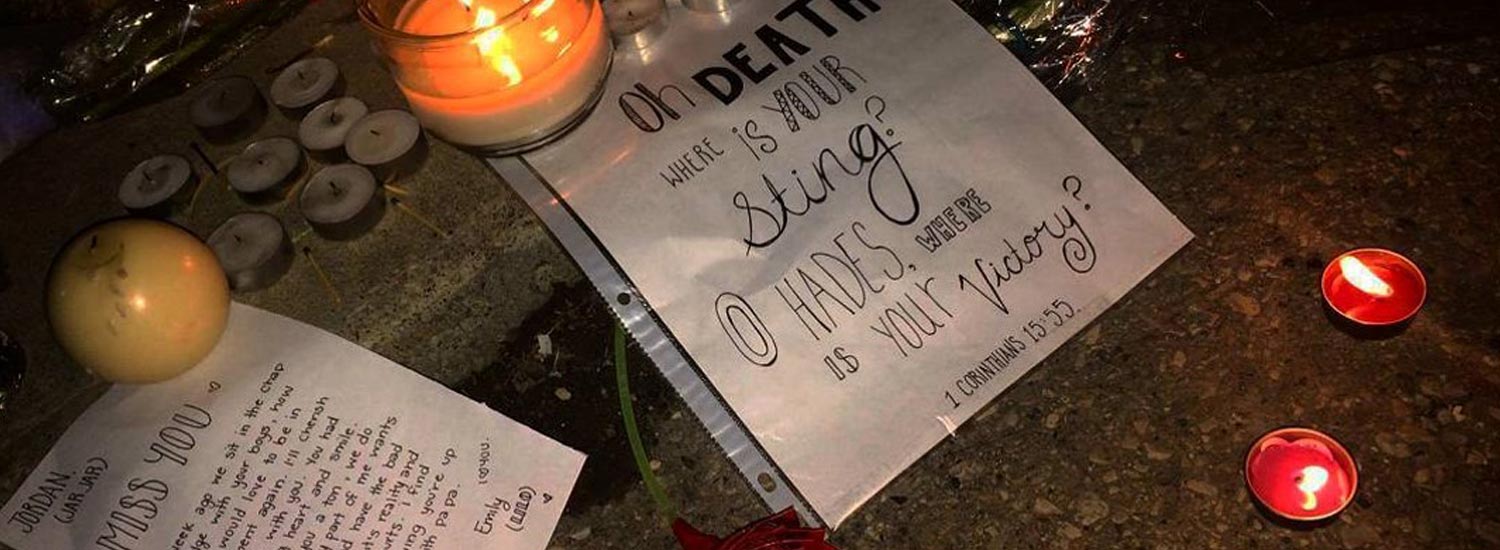 Oh DEATH
WHERE iS YOUR
Sting?
O HADES, WHERE
is YOUr Victory?
1 CORINTHIANS 15:55.
JORDAN,
(JAR JAR)
MISS YOU
week ago we sit in the chap
ge with your boys, how
would love to be in
ment again. I'll cherish
with you. You had
heart and smile.
you a ton, we do
y part of me wants
d have the bad
t's reality and
urts. I find
ing you're up
ith papa.
YOU.
Emily